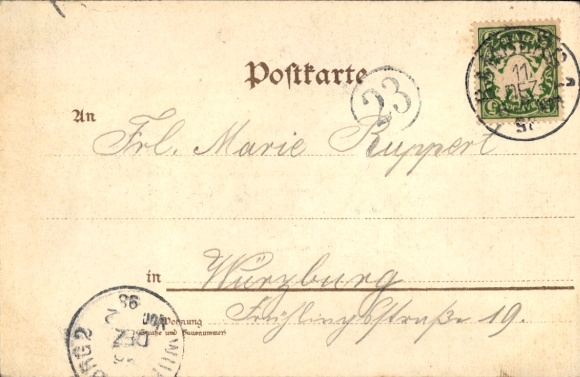 Postkarte
23
11.
DEZ
An
Frl. Marie Ruppert
in Würzburg
Wohnung
(Straße und Hausnummer)
Frühlingsstraße 19.
DEZ
98